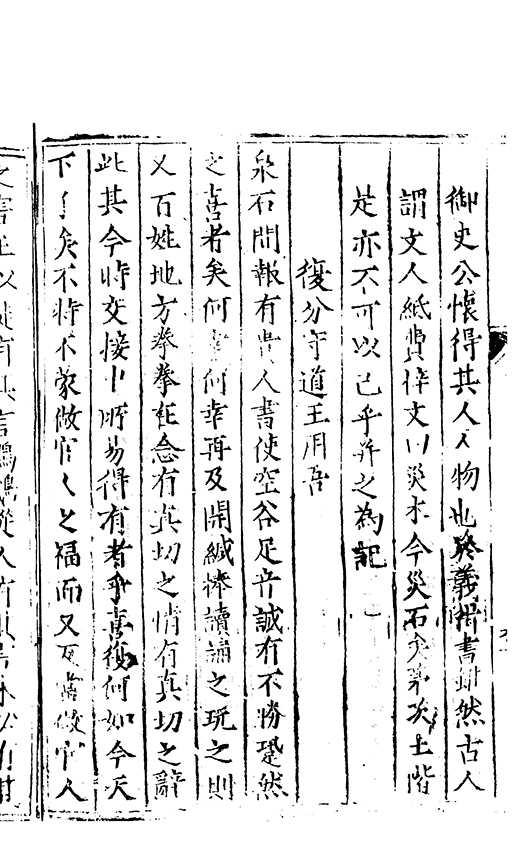 御史公懷得其人人物也終義得書雖然古人
謂文人紙費侔文以災木今災石矣第次土階
是亦不可以已乎并之為記
復分守道王用吾
泉石間報有貴人書使空谷足音誠有不勝跫然
之喜者矣何幸何幸再及開緘捧讀誦之玩之則
又百姓地方拳拳在念有真切之情有真切之辭
此其今時交接中所易得有者乎喜復何如今天
下事矣不特不蒙做官人之福而又反當做官人
之害正以徒有其言